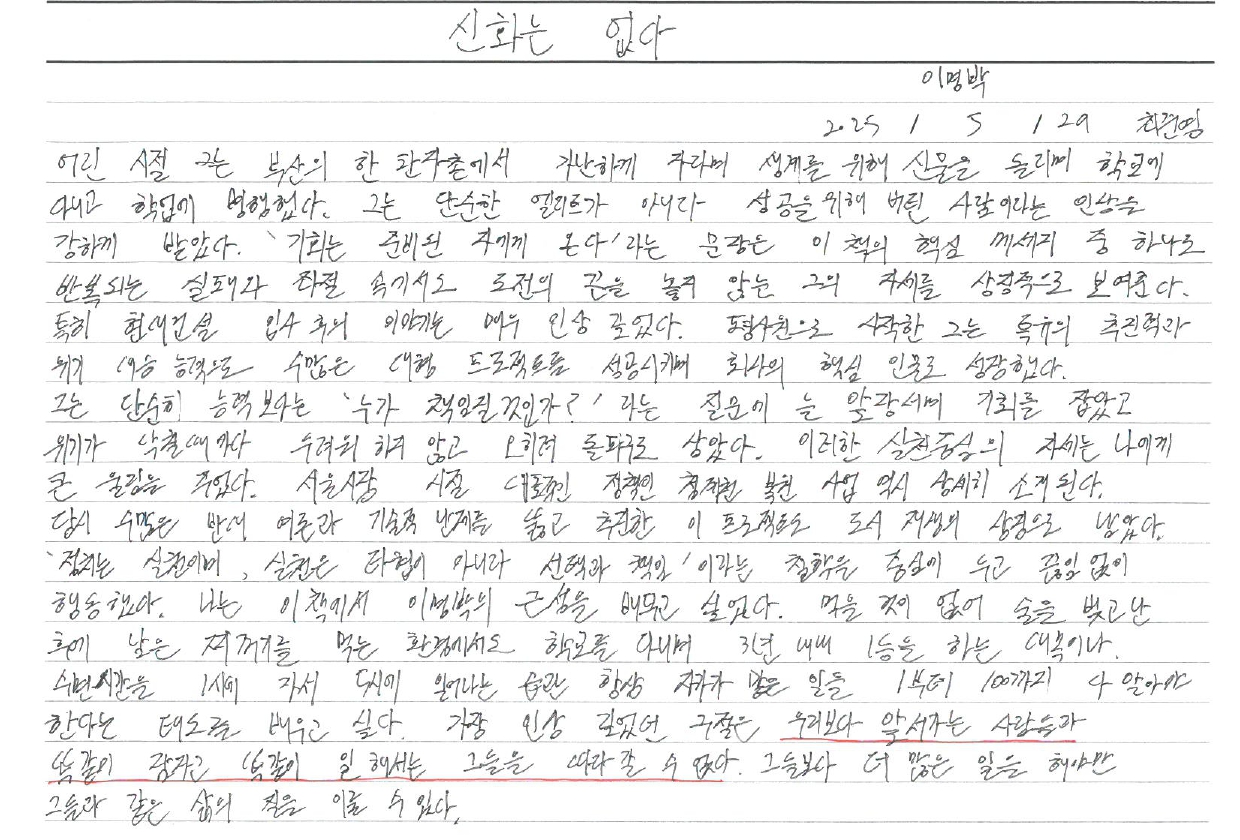 신화는 없다
이명박
2025 / 5 / 29 최권영
어린 시절 그는 부산의 한 판자촌에서 가난하게 자라며 생계를 위해 신물을 돌리며 학교에
다니고 학업에 병행했다. 그는 단순한 엘리트가 아니라 성공을 위해 버틴 사람이라는 인상을
강하게 받았다. '기회는 준비된 자에게 온다'라는 문장은 이 책의 핵심 메세지 중 하나로
반복되는 실패와 좌절 속기서도 도전의 끈을 놓지 않는 그의 자세를 상징적으로 보여준다.
특히 현대건설 입사 후의 이야기는 매우 인상 깊었다. 평사원으로 시작한 그는 특유의 추진력과
위기 대응 능력으로 수많은 대형 프로젝트를 성공시키며 회사의 핵심 인물로 성장했다.
그는 단순히 능력보다는 '누가 책임질것인가?'라는 질문에 늘 앞장서며 기회를 잡았고
위기가 닥칠때마다 두려워 하지 않고 오히려 돌파구로 삼았다. 이러한 실천중심의 자세는 나에게
큰 울림을 주었다. 서울시장 시절 대표적인 정책인 청계천 복원 사업 역시 상세히 소개된다.
당시 수많은 반대 여론과 기술적 난제를 뚫고 추진한 이 프로젝트는 도시 재생의 상징으로 남았다.
'정치는 실천이며, 실천은 타협이 아니라 선택과 책임'이라는 철학을 중심에 두고 끊임없이
행동했다. 나는 이책에서 이명박의 근성을 배우고 싶었다. 먹을 것이 없어 술을 빚고난
후에 남은 찌꺼기를 먹는 환경에서도 학교를 다니며 3년 내내 1등을 하는 대목이나.
수면시간을 1시에 자서 5시에 일어나는 습관 항상 자기가 맡은 일들 1부터 100까지 다 알아야
한다는 태도를 배우고 싶다. 가장 인상 깊었던 구절은 우리보다 앞서가는 사람들과
똑같이 잠자고 똑같이 일 해서는 그들을 따라 갈 수 없다. 그들보다 더 많은 일을 해야만
그들과 같은 삶의 질을 이룰 수 있다.